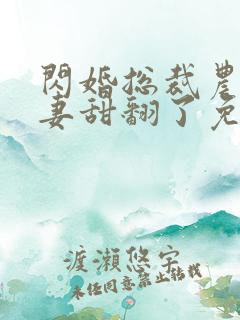 閃婚总裁農
妻甜翻了免
渡瀨悠宇
未经同意禁止转载